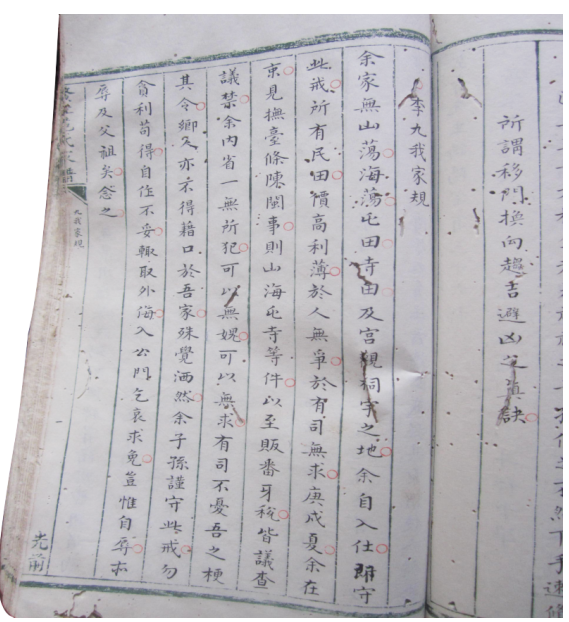 所謂移門換向趨吉避凶之真訣
李九我家規
余家無山蕩海蕩屯田寺田及宮觀祠宇之地余自入仕即守
此戒所有民田價高利薄於人無爭於有司無求庚戌夏余在
京見撫臺條陳閩事則山海屯寺等件以至販番牙稅皆議查
議禁余內省一無所犯可以無媿可以無求有司不憂吾之梗
其令鄉人亦不得藉口於吾家殊覺洒然余子孫謹守此戒勿
貪利苟得自作不妥輒取外侮入公門乞哀求免豈惟自辱亦
辱及父祖矣念之
九我家規
光前